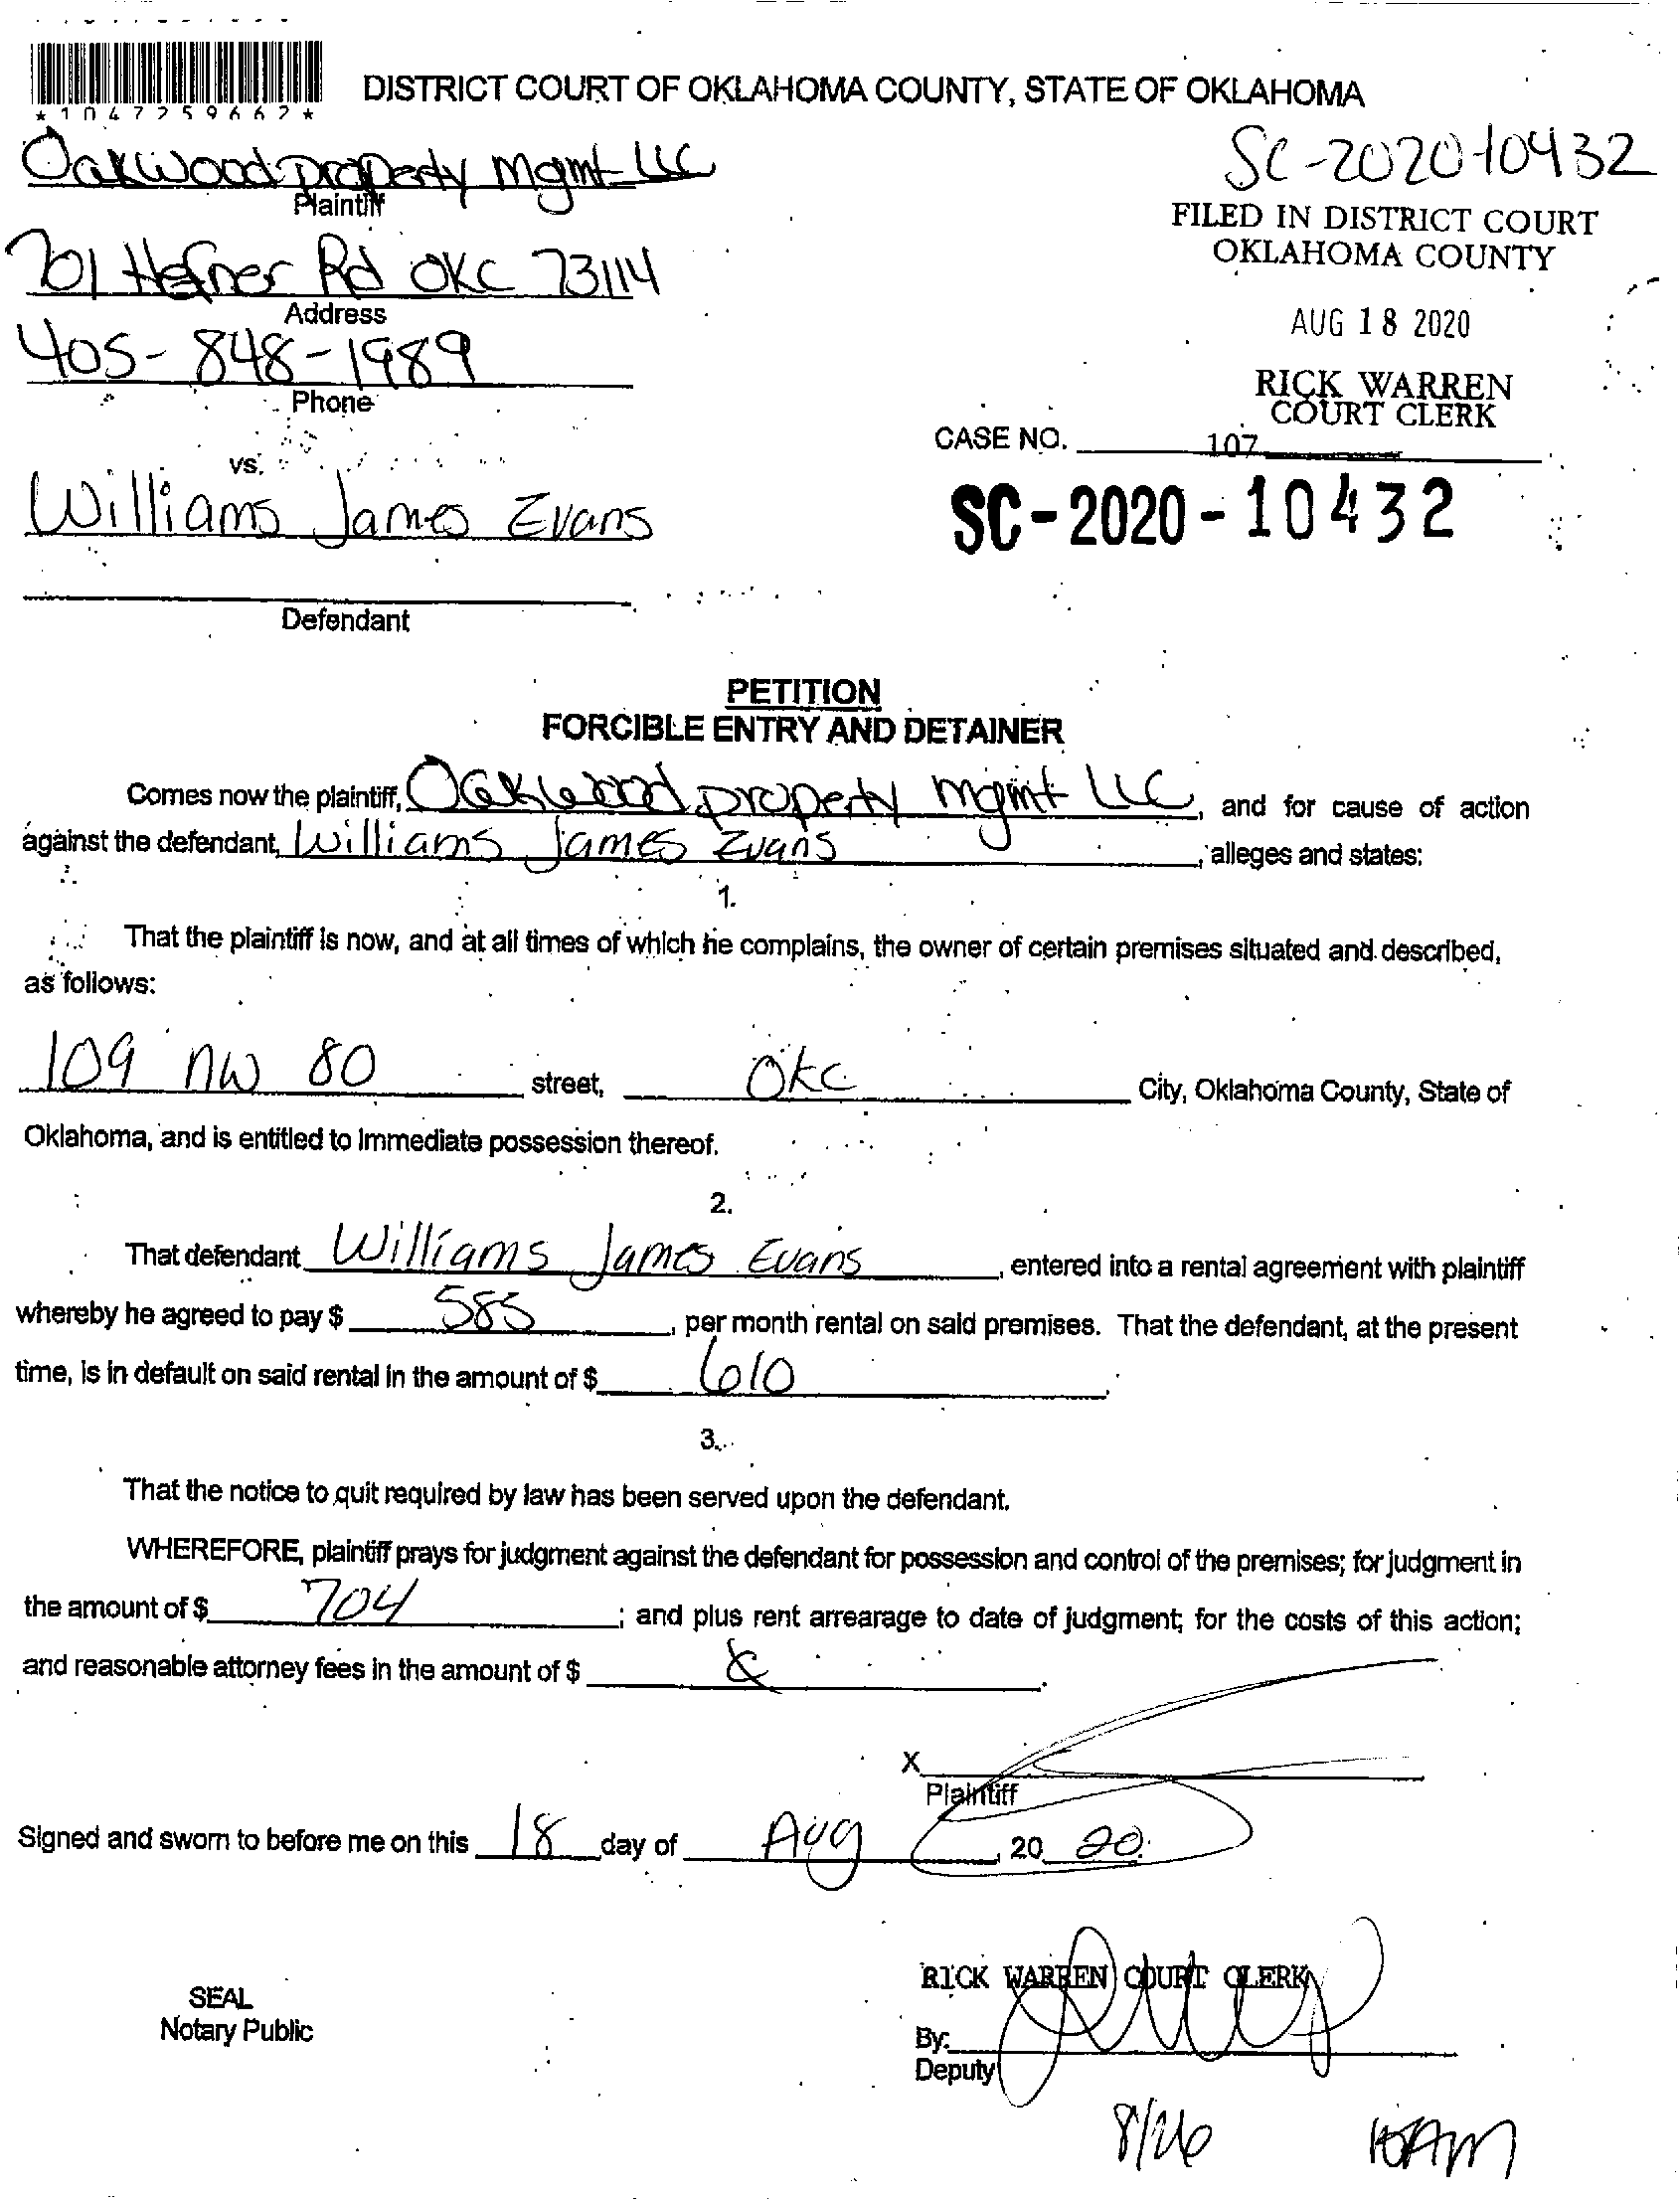 *1047259662*
DISTRICT COURT OF OKLAHOMA COUNTY, STATE OF OKLAHOMA
Oakwood property mgmt LLC
Plaintiff
SC-2020-10432
FILED IN DISTRICT COURT
OKLAHOMA COUNTY
701 Hefner Rd OKC 73114
Address
AUG 18 2020
405-848-1989
Phone
RICK WARREN
COURT CLERK
CASE NO.
107
vs.
Williams James Evans
SC-2020-10432
Defendant
PETITION
FORCIBLE ENTRY AND DETAINER
Comes now the plaintiff, Oakwood property mgmt LLC, and for cause of action
against the defendant, Williams James Evans, alleges and states:
1.
That the plaintiff is now, and at all times of which he complains, the owner of certain premises situated and described,
as follows:
109 NW 80 street, OKC City, Oklahoma County, State of
Oklahoma, and is entitled to immediate possession thereof.
2.
That defendant Williams James Evans, entered into a rental agreement with plaintiff
whereby he agreed to pay $ 585, per month rental on said premises. That the defendant, at the present
time, is in default on said rental in the amount of $ 610.
3.
That the notice to quit required by law has been served upon the defendant.
WHEREFORE, plaintiff prays for judgment against the defendant for possession and control of the premises; for judgment in
the amount of $ 704; and plus rent arrearage to date of judgment; for the costs of this action;
and reasonable attorney fees in the amount of $
X
Plaintiff
Signed and sworn to before me on this 18 day of Aug, 20 20.
RICK WARREN COURT CLERK
SEAL
Notary Public
By:
Deputy
8/26